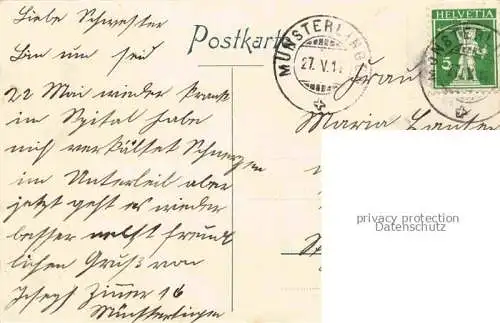 Liebe Schwester
Bin um seid
22 Mai wieder krank
im Spital habe
mich verkältet Schmerzen
im Unterleib aber
jetzt geht es wieder
besser nebst freund
lichen Gruß von
Joseph Zimmer 16
Münsterlingen
Postkarte
MÜNSTERLINGEN
27. V. 1
HELVETIA
5
MÜNSTERL
Frau
Maria
privacy protection
Datenschutz